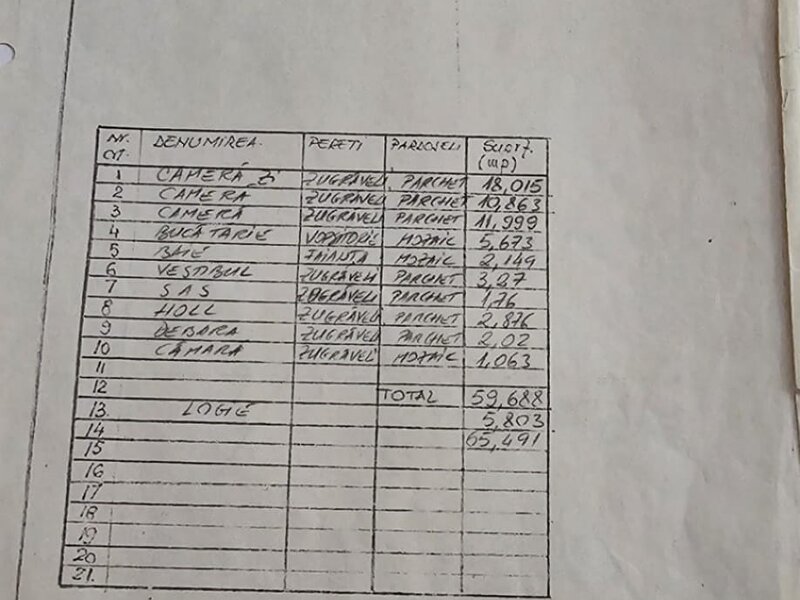 Nr. crt. DENUMIREA PERETI PARDOSELI Supraf. (mp)
1 CAMERĂ Zi ZUGRĂVELI PARCHET 18,015
2 CAMERA ZUGRĂVELI PARCHET 10,863
3 CAMERĂ ZUGRĂVELI PARCHET 11,999
4 BUCĂTARIE VOPSITORIE MOZAIC 5,673
5 BAIE FAIANTA MOZAIC 2,149
6 VESTIBUL ZUGRĂVELI PARCHET 3,27
7 SAS ZUGRĂVELI PARCHET 1,76
8 HOLL ZUGRĂVELI PARCHET 2,876
9 DEBARA ZUGRĂVELI PARCHET 2,02
10 CĂMARA ZUGRĂVELI MOZAIC 1,063
11
12 TOTAL 59,688
13. LOGIE 5,803
14 65,491
15
16
17
18
19
20
21.